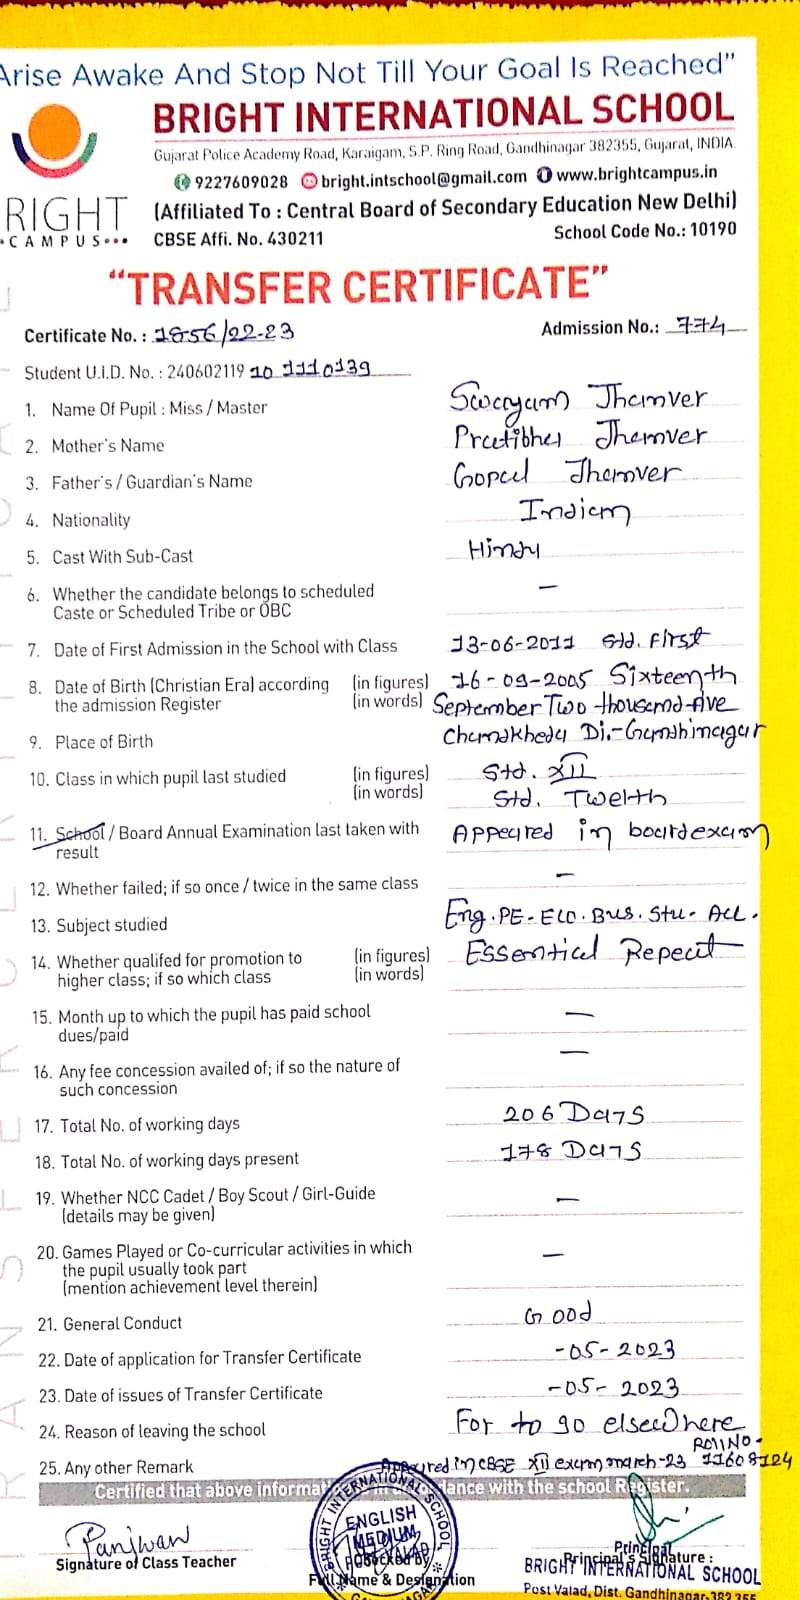 Arise Awake And Stop Not Till Your Goal Is Reached”
BRIGHT INTERNATIONAL SCHOOL
Gujarat Police Academy Road, Karaigam, S.P. Ring Road, Gandhinagar 382355, Gujarat, INDIA.
9227609028 bright.intschool@gmail.com www.brightcampus.in
RIGHT
CAMPUS
(Affiliated To : Central Board of Secondary Education New Delhi)
CBSE Affi. No. 430211 School Code No.: 10190
“TRANSFER CERTIFICATE”
Certificate No. : 1856/22-23 Admission No.: 774
Student U.I.D. No. : 240602119 10 1110139
1. Name Of Pupil : Miss / Master Swayam Jhanver
2. Mother's Name Pratibha Jhanver
3. Father's / Guardian's Name Gopal Jhanver
4. Nationality Indian
5. Cast With Sub-Cast Hindu
6. Whether the candidate belongs to scheduled —
Caste or Scheduled Tribe or OBC
7. Date of First Admission in the School with Class 13-06-2011 Std. First
8. Date of Birth (Christian Era) according (in figures) 16-09-2005 Sixteenth
the admission Register (in words) September Two thousand five
9. Place of Birth Di.- Gandhinagar
10. Class in which pupil last studied (in figures) Std. XII
(in words) Std. Twelth
11. School / Board Annual Examination last taken with Appeared in board exam
result
12. Whether failed; if so once / twice in the same class —
13. Subject studied Eng. PE - Eco. Bus. Stu - Acc.
14. Whether qualifed for promotion to (in figures) Essential Repeat
higher class; if so which class (in words)
15. Month up to which the pupil has paid school —
dues/paid
16. Any fee concession availed of; if so the nature of —
such concession
17. Total No. of working days 206 Days
18. Total No. of working days present 178 Days
19. Whether NCC Cadet / Boy Scout / Girl-Guide —
(details may be given)
20. Games Played or Co-curricular activities in which —
the pupil usually took part
(mention achievement level therein)
21. General Conduct Good
22. Date of application for Transfer Certificate -05-2023
23. Date of issues of Transfer Certificate -05-2023
24. Reason of leaving the school For to go elsewhere
Roll No-
25. Any other Remark Appeared in CBSE XII exam march-23 11608124
Certified that above with the school Register.
BRIGHT INTERNATIONAL SCHOOL
ENGLISH
MEDIUM
Panjwani
Signature of Class Teacher
Checked By
Full Name & Designation
Principal
Principal's Signature :
BRIGHT INTERNATIONAL SCHOOL
Post Valad, Dist. Gandhinagar-382 355